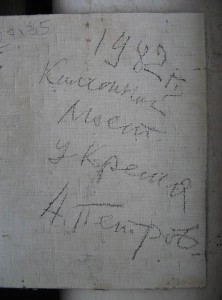 1982 г.
Каменный
мост
у Кремля
А. Петров.